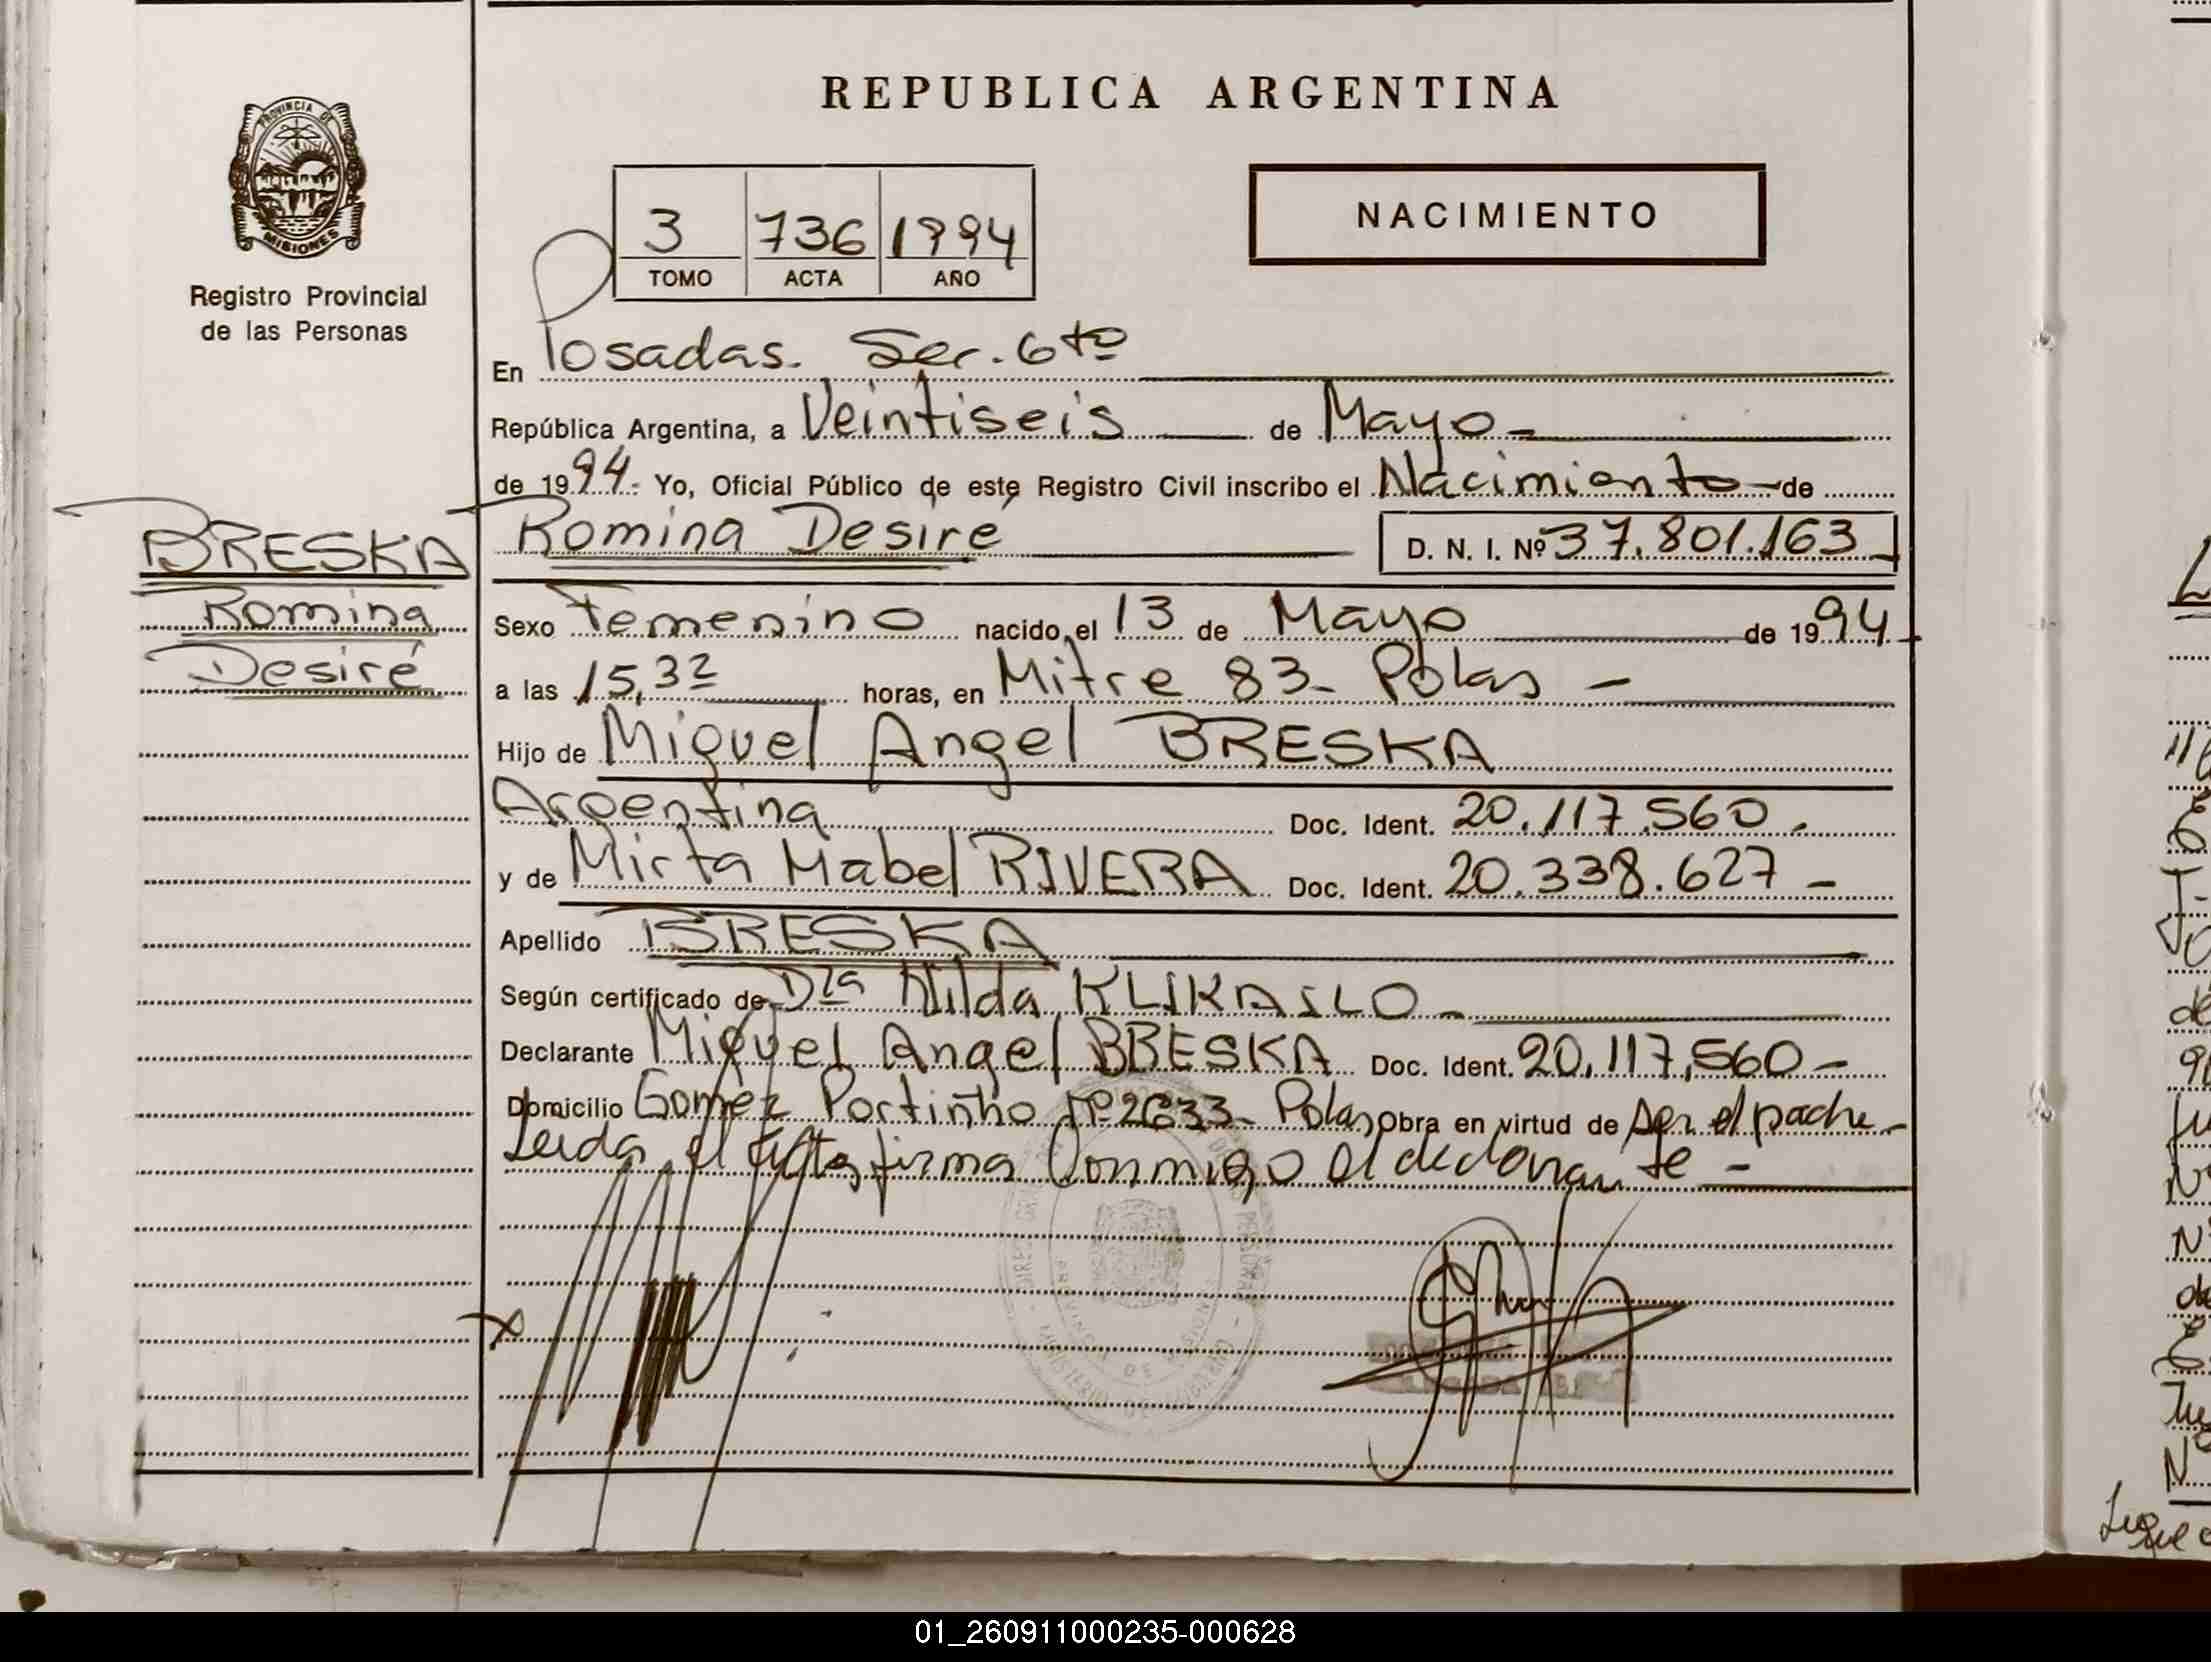 REPUBLICA ARGENTINA
PROVINCIA DE
MISIONES
Registro Provincial
de las Personas
3 736 1994
TOMO ACTA AÑO
NACIMIENTO
En Posadas. Sec. 6to
República Argentina, a Veintiseis de Mayo
de 1994. Yo, Oficial Público de este Registro Civil inscribo el Nacimiento de
BRESKA
Romina
Desiré
Romina Desire D. N. I. Nº 37.801.163
Sexo Femenino nacido el 13 de Mayo de 1994
a las 15,32 horas, en Mitre 83- Pdas -
Hijo de Miguel Angel BRESKA
Argentina Doc. Ident. 20.117.560.
y de Mirta Mabel RIVERA Doc. Ident. 20.338.627 -
Apellido BRESKA
Según certificado de Dra Nilda KLIKAILO -
Declarante Miguel Angel BRESKA Doc. Ident. 20.117.560 -
Domicilio Gomez Portinho Nº 2633- Pdas, Obra en virtud de ser el padre -
Leida el acta, firma Conmigo el declarante -
01_260911000235-000628